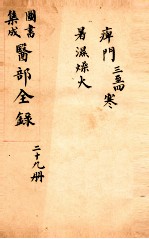 痺門三至四寒
暑濕燥火
圖書
集成
醫部全錄
二十九册